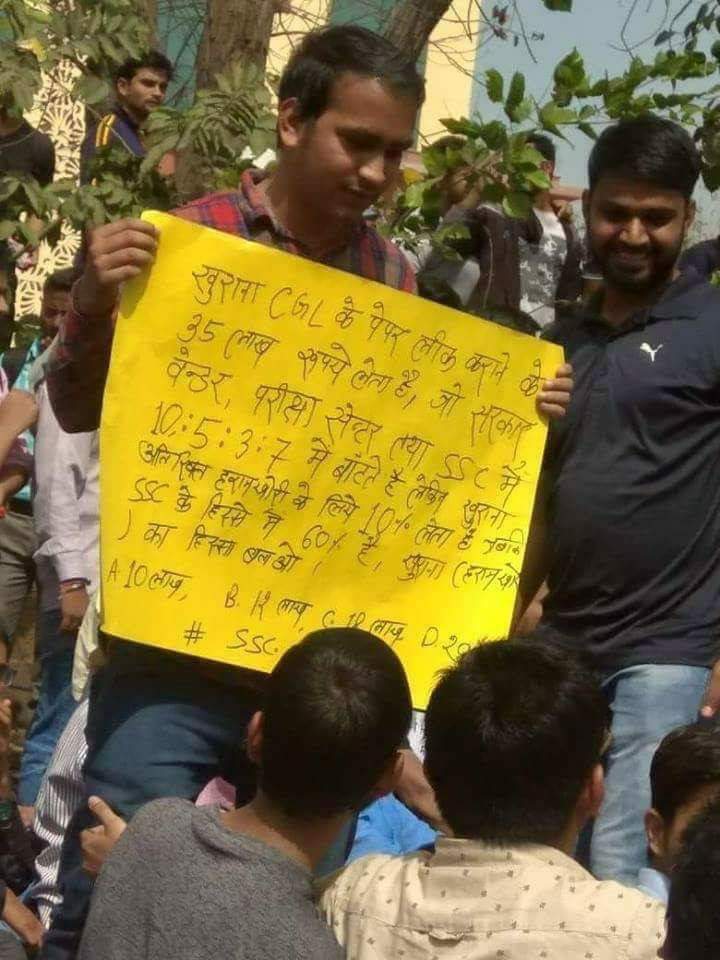 खुराना CGL के पेपर लीक कराने के
35 लाख रूपये लेता है, जो सरकार
वेन्डर, परीक्षा सेन्टर तथा SSC में
10:5:3:7 में बांटते है लेकिन खुराना
अतिरिक्त हरामखोरी के लिये 10% लेता है जबकि
SSC के हिस्से में 60% है, खुराना (हरामखोर
) का हिस्सा बताओ
A 10 लाख, B. 12 लाख, C. 18 लाख D. 20
# SSC